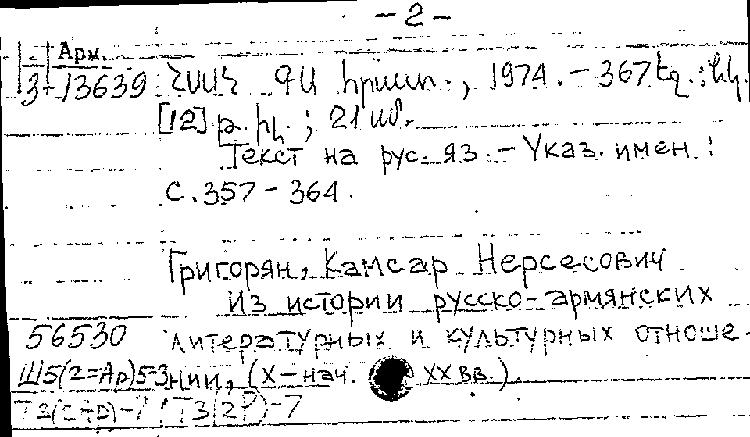 -2-
Арм.
3-13639 ՀՍՍՀ ԳԱ հրատ., 1974. - 367 էջ.: նկ.
[12] թ. իլ.; 21 սմ.
Текст на рус. яз. - Указ. имен.:
с. 357 - 364.
Григорян, Камсар Нерсесович
Из истории русско-армянских
56530 литературных и культурных отноше-
Ш5(2=Ар)5-3 нии, (X-нач. XX вв.).